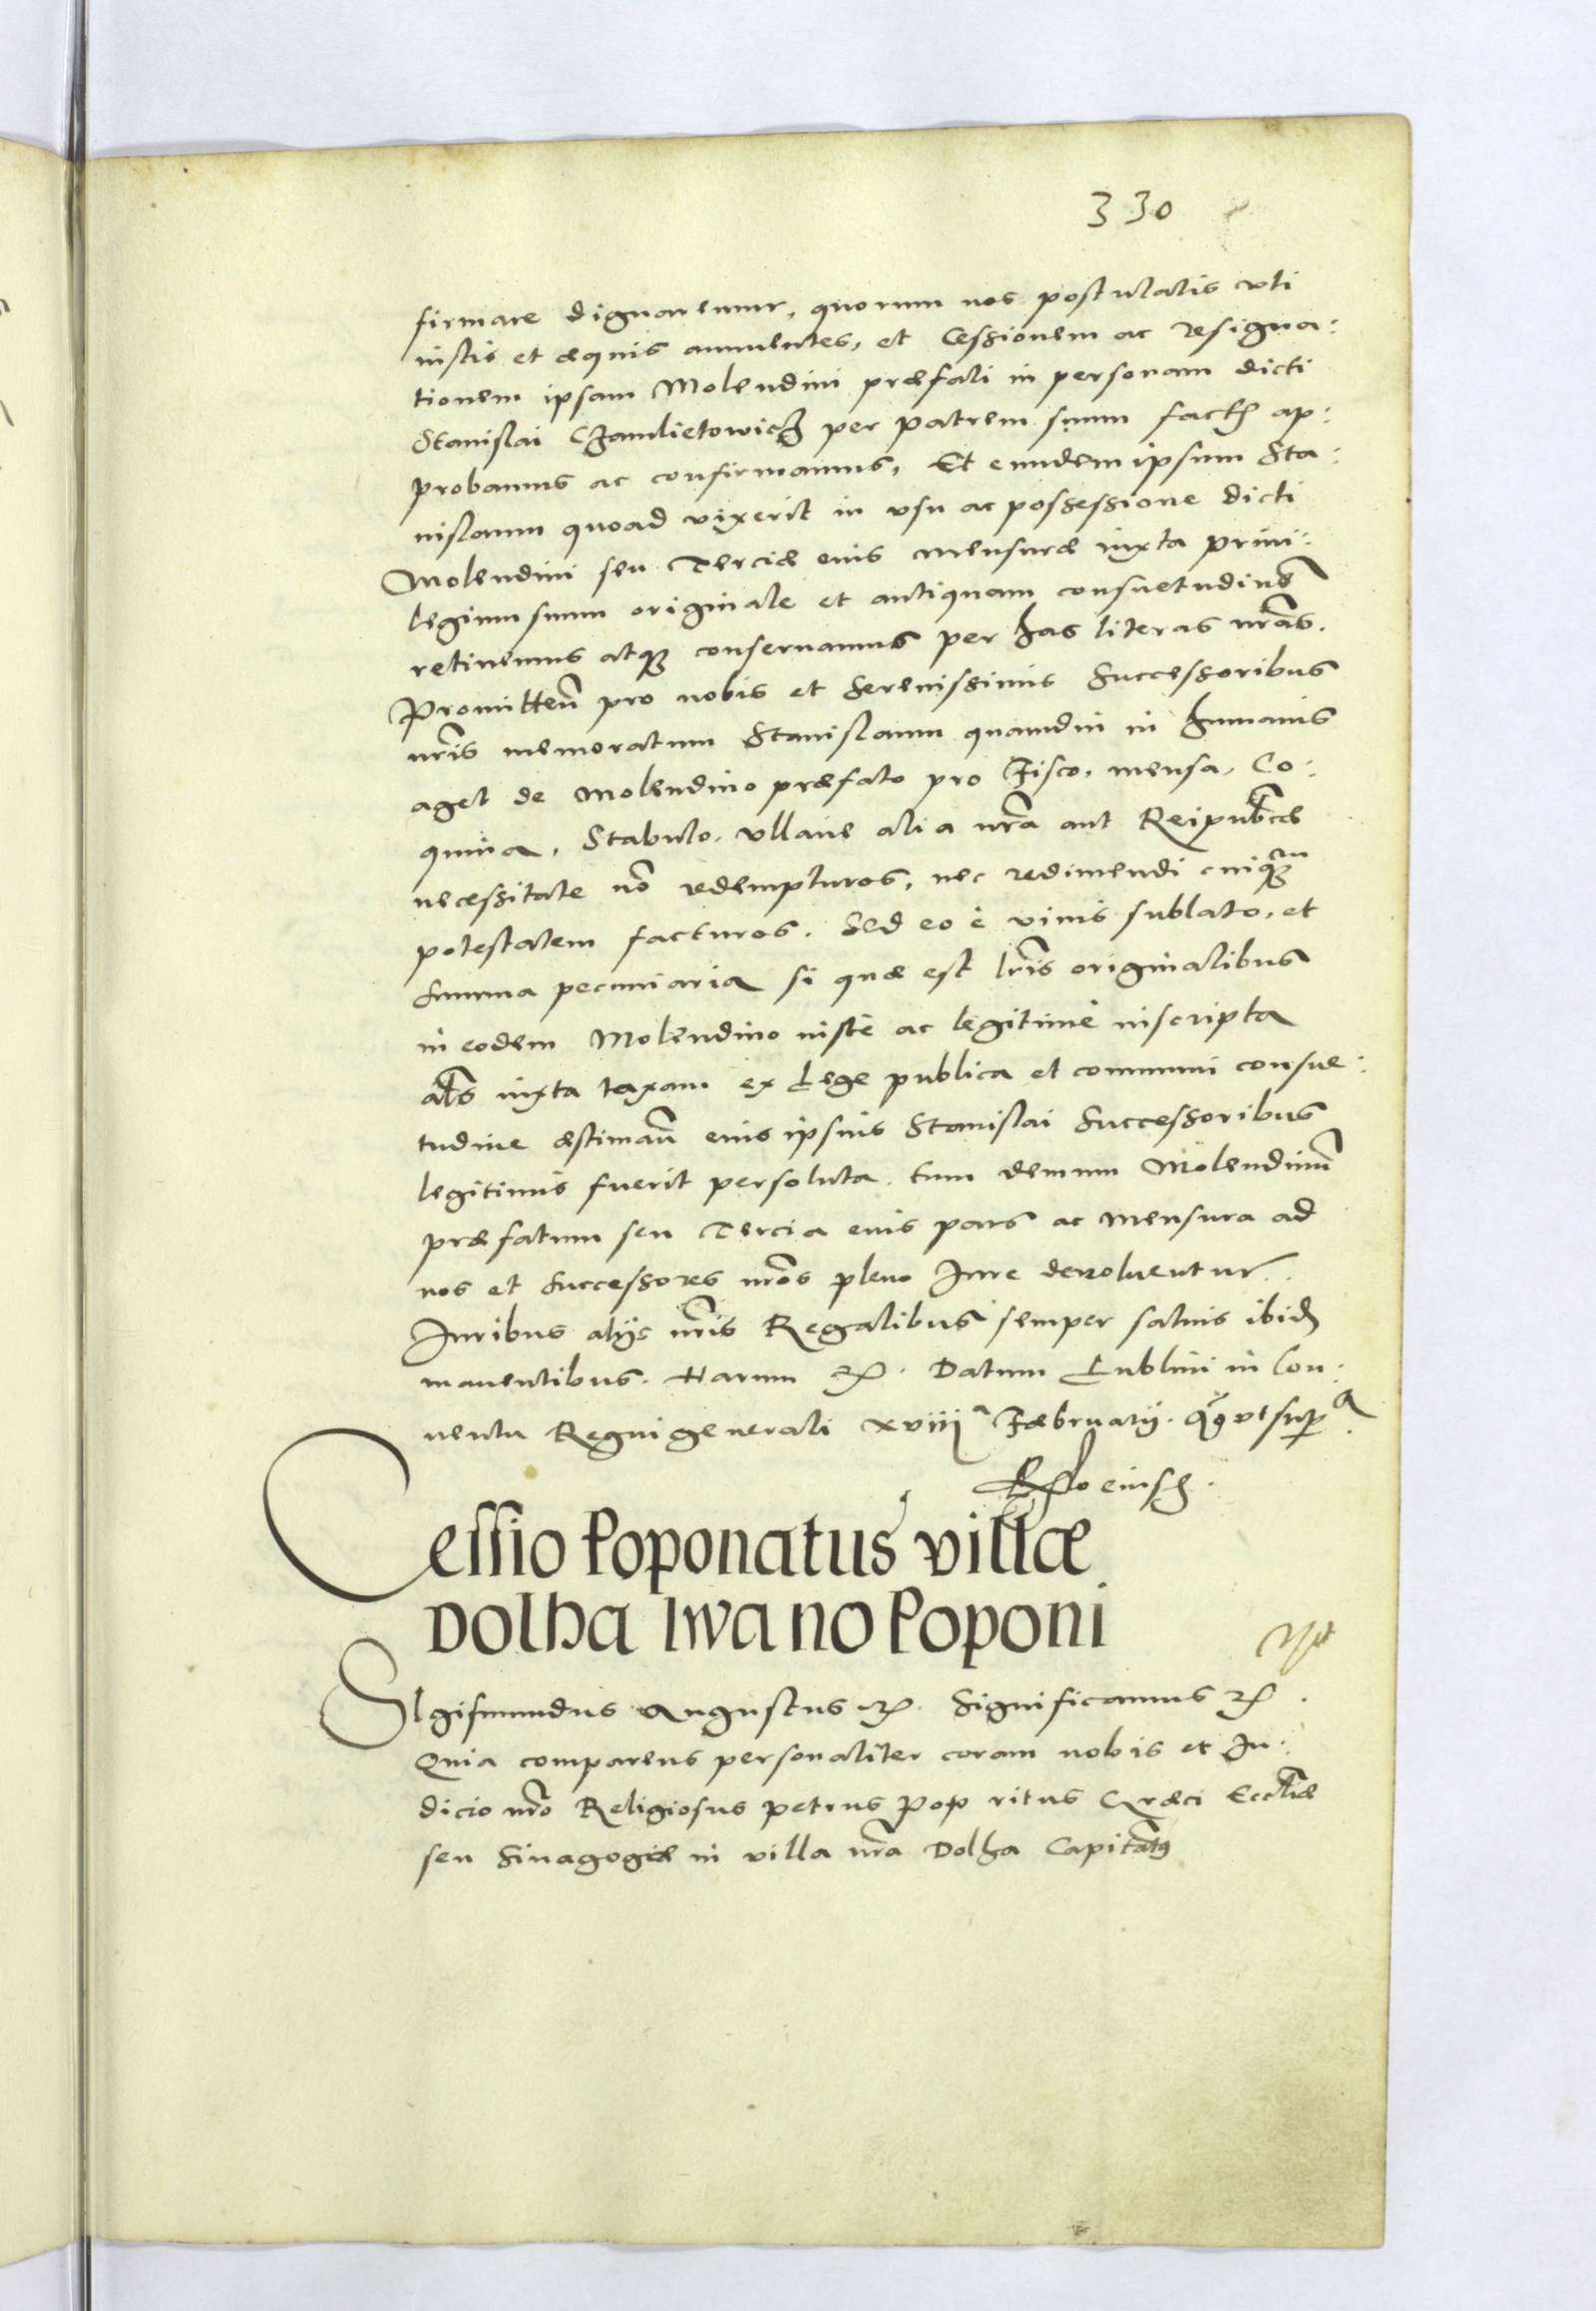 330
firmare dignaremur, quorum nos postulatis vti
iustis et æquis annuentes, et Cessionem ac resigna:
tionem ipsam Molendini præfati in personam dicti
Stanislai per patrem suum factā ap:
probamus ac confirmamus, Et eundem ipsum Sta:
nislaum quoad vixerit in vsu ac possessione dicti
Molendini seu Terciæ eius mensuræ iuxta priui:
legium suum originale et antiquam consuetudinē
retinemus atqꝫ conseruamus per has literas nr̃as.
Promitteñ pro nobis et Serenissimis Successoribus
nr̃is memoratum Stanislaum quamdiu in humanis
aget de Molendino præfato pro Fisco, mensa, Co:
quina, Stabulo, vllaue alia nr̃a aut Reipub̃cæ
necessitate nō redempturos, nec redimendi cuiqꝫm
potestatem facturos. Sed eo è viuis sublato, et
Summa pecuniaria si quæ est lr̃is originalibus
in eodem Molendino iustè ac legitimè inscripta
al̃s iuxta taxam ex Lege publica et communi consue:
tudine æstimañ eius ipsius Stanislai Successoribus
legitimis fuerit persoluta, tum demum Molendinū
præfatum seu Tercia eius pars ac mensura ad
nos et Successores nr̃os pleno Iure deuoluentur.
Iuribus alijs nr̃is Regalibus semper saluis ibidꝫ
manentibus. Harum ꝛc̃. Datum Lublini in Con:
uentu Regni generali xviijᵃ Fæbruarij. qꝫ vt supᵃ
Rlo eiusdꝫ.
Cessio Poponatus villæ
Dolha Iwano Poponi
Sigismundus Augustus ꝛc̃. Significamus ꝛc̃.
Quia comparens personaliter coram nobis et Iu:
dicio nr̃o Religiosus Petrus Pop ritus Græci Eccl̃iæ
seu Sinagogæ in villa nr̃a Dolha Capitãtꝰ